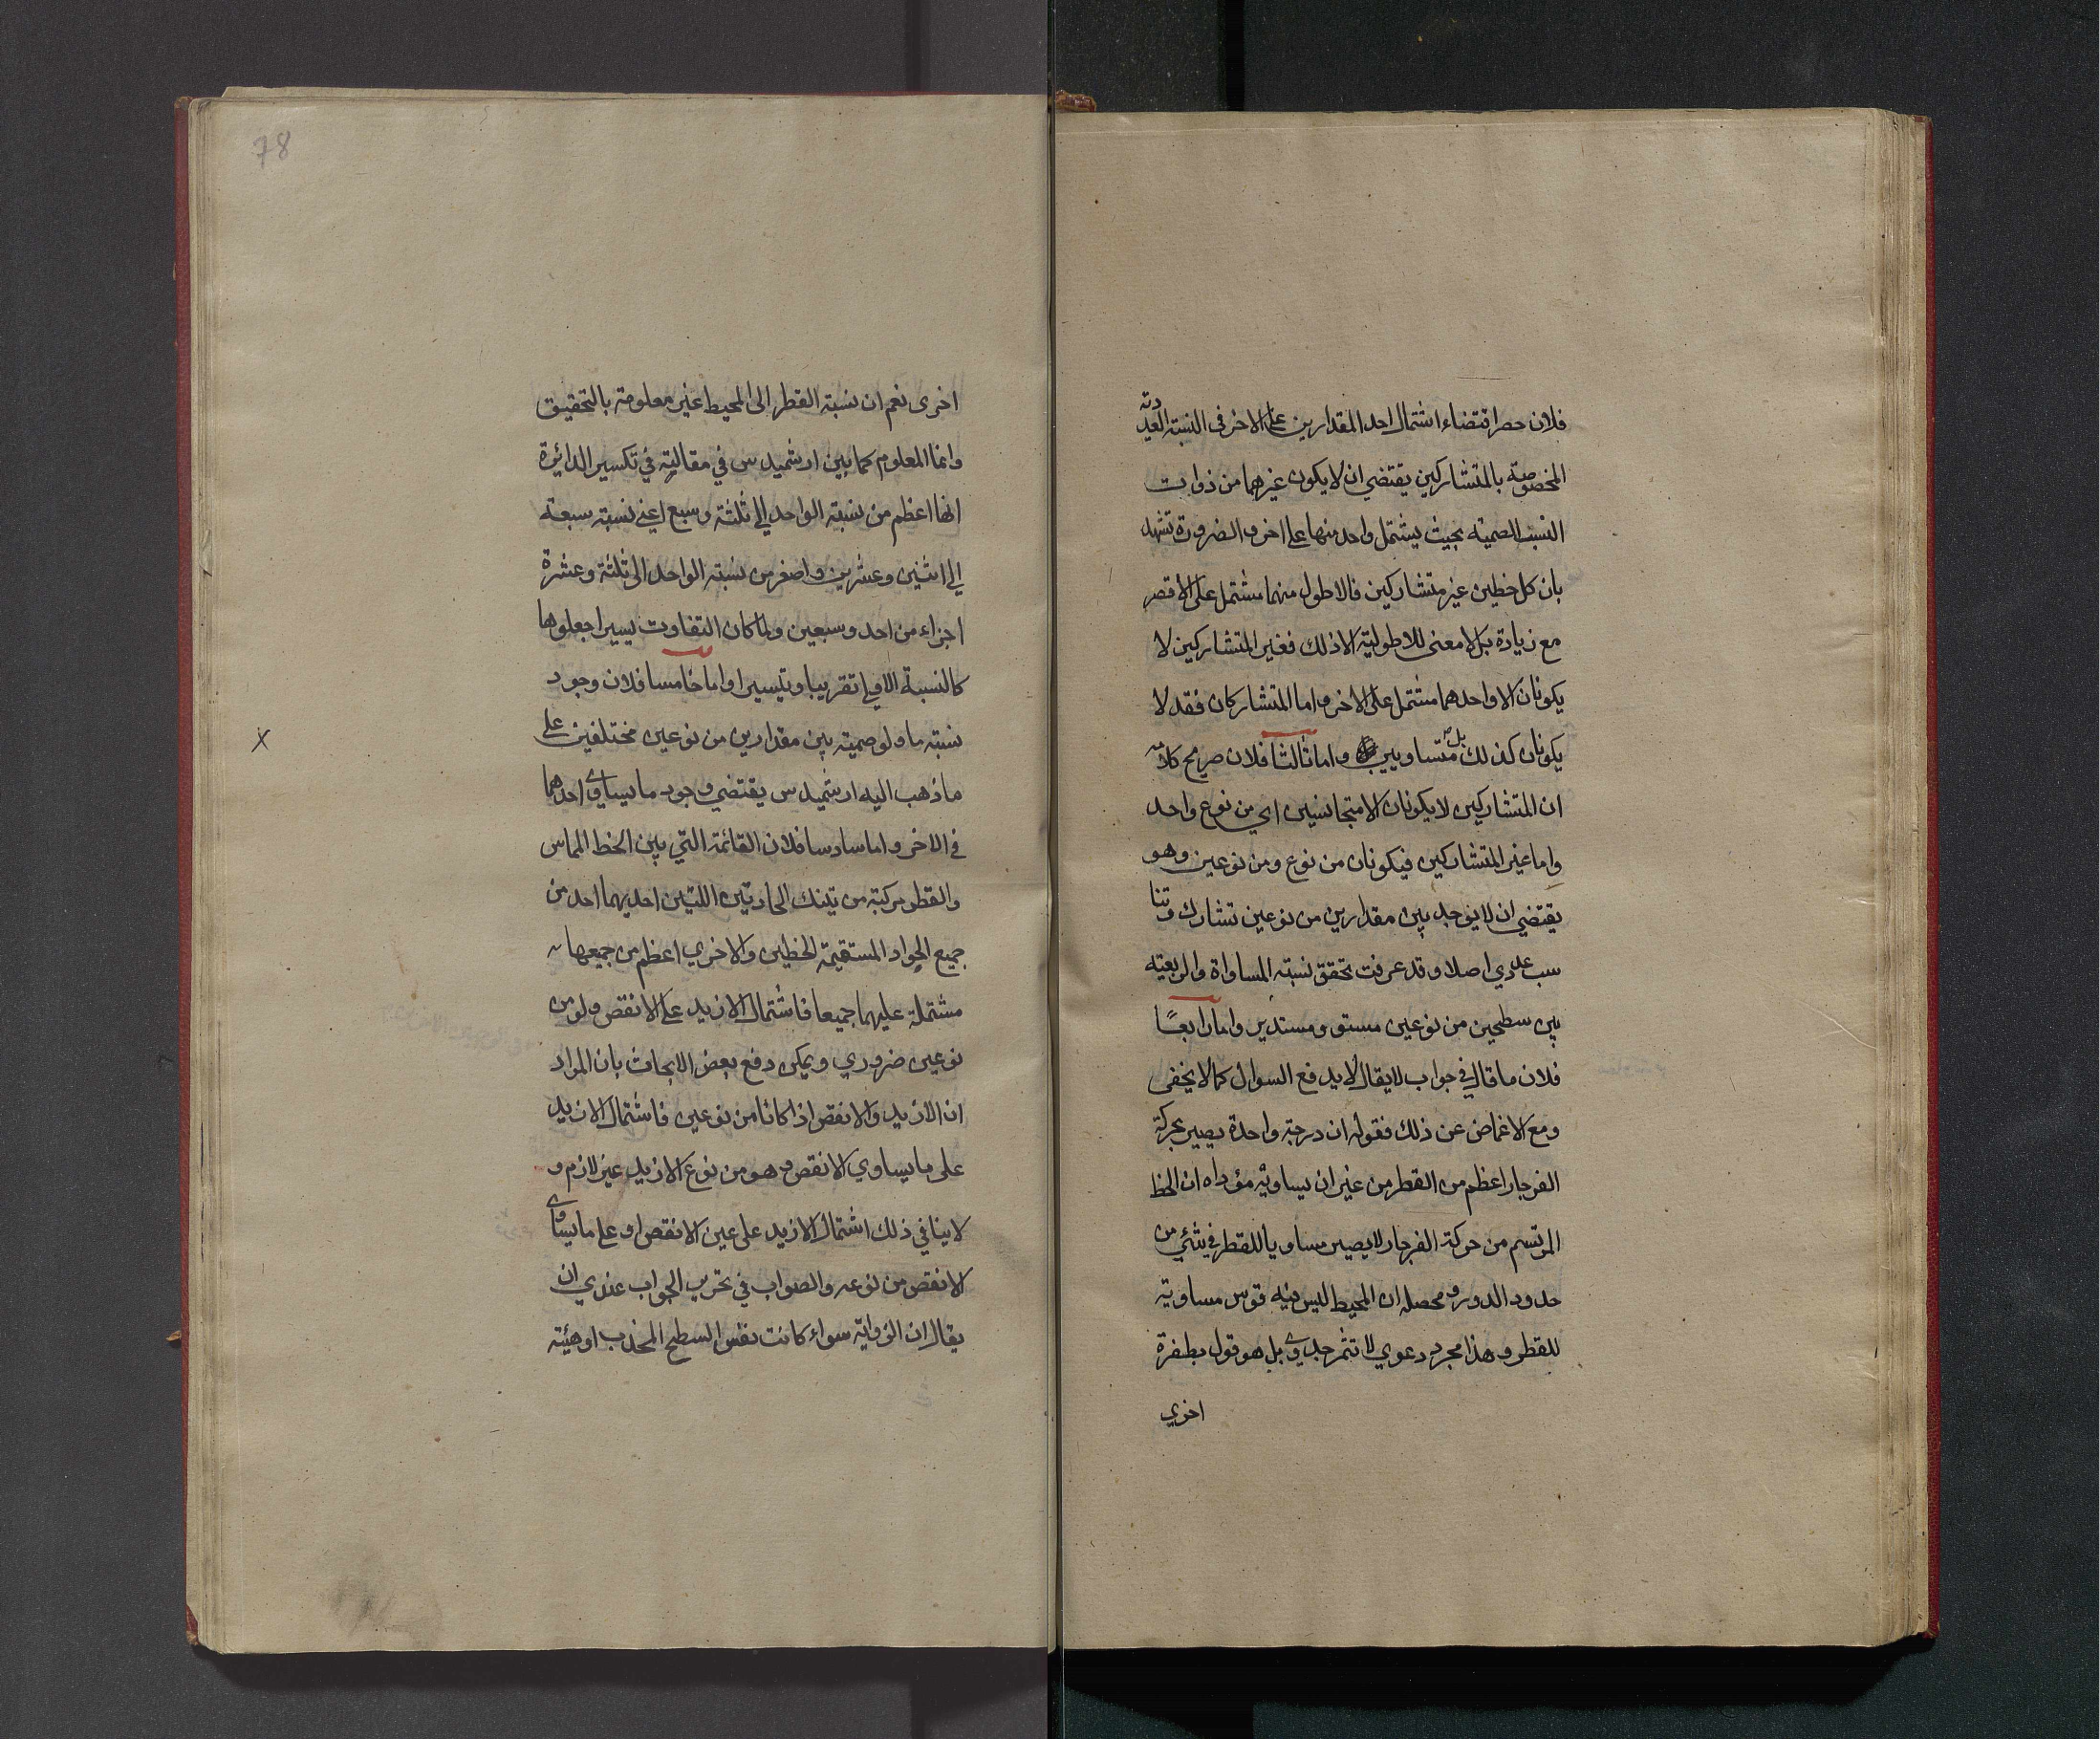 فلان حصر اقتضاء اشتمال احد المقدارين على الاخر فى النسبة العددية
المخصوصة بالمتشاركين يقتضي ان لا يكون غيرهما من ذوات
النسب الصمية بحيث يشتمل واحد منها على اخر والضرورة تشهد
بان كل خطين غير متشاركين فالاطول منهما مشتمل على الاقصر
مع زيادة بل لا معنى للاطولية الا ذلك فغير المتشاركين لا
يكونان الا واحدهما مشتمل على الاخر واما المتشاركان فقد لا
يكونان كذلك بل متساويين واما ثالثا فلان صريح كلامه
ان المتشاركين لا يكونان الا متجانسين اي من نوع واحد
واما غير المتشاركين فيكونان من نوع ومن نوعين وهو
يقتضي ان لا يوجد بين مقدارين من نوعين تشارك وتنا
سب عددي اصلا وقد عرفت تحقق نسبة المساواة والربعية
بين سطحين من نوعين مستو ومستدير واما رابعًا
فلان ما قال في جواب لا يقال لا يدفع السوال كما لا يخفى
ومع الاغماض عن ذلك فقوله ان درجة واحدة يصير بحركة
الفرجار اعظم من القطر من غير ان يساويه مؤداه ان الخط
المرتسم من حركة الفرجار لا يصير مساويا للقطر في شئ من
حدود الدور ومحصله ان المحيط ليس فيه قوس مساوية
للقطر وهذا مجرد دعوي لا تثمر جدوي بل هو قول بطفرة
اخري
78
اخرى نعم ان نسبة القطر الى المحيط غير معلومة بالتحقيق
وانما المعلوم كما بين ارشميدس في مقالته في تكسير الدائرة
انها اعظم من نسبة الواحد الي ثلثة وسبع اعني نسبة سبعة
الي اثنين وعشرين واصغر من نسبة الواحد الى ثلثة وعشرة
اجزاء من احد وسبعين ولما كان التفاوت يسيرا جعلوها
كالنسبة الاولي تقريبا وتيسيرا واما خامسا فلان وجود
نسبة ما ولو صمية بين مقدارين من نوعين مختلفين على
ما ذهب اليه ارشميدس يقتضي وجود ما يساوي احدهما
في الاخر واما سادسا فلان القائمة التي بين الخط المماس
والقطر مركبة من تينك الحادتين اللتين احديهما احد من
جميع الحواد المستقيمة الخطين والاخري اعظم من جميعها
مشتملة عليهما جميعا فاشتمال الازيد على الانقص ولو من
نوعين ضروري ويمكن دفع بعض الابحاث بان المراد
ان الازيد والانقص اذا كانا من نوعين فاشتمال الازيد
على ما يساوي الانقص وهو من نوع الازيد غير لازم و
لا ينافي ذلك اشتمال الازيد على عين الانقص او على ما يساوي
الانقص من نوعه والصواب في تحرير الجواب عندي ان
يقال ان الزواية سواء كانت نفس السطح المحدب او هيئة